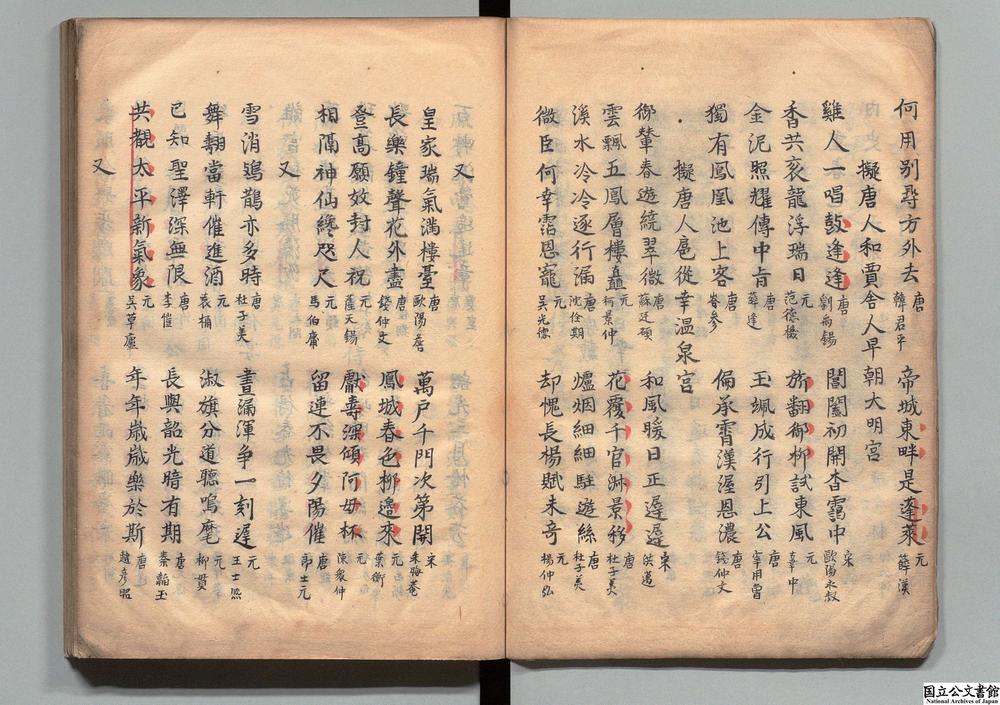 何用别尋方外去 唐 韓君平 帝城東畔是蓬萊 元 薛漢
擬唐人和賈舎人早朝大明宮
雞人一唱鼓逢逢 唐 劉禹錫 閶闔初開杳靄中 宋 歐陽永叔
香共衮龍浮瑞日 元 范德機 旂翻御柳試東風 元 辛中
金泥照耀傳中旨 唐 薛逢 玉珮成行引上公 唐 窂甪曾
獨有鳳凰池上客 唐 岑參 偏承霄漢渥恩濃 唐 錢仲文
擬唐人扈從幸温泉宮
御輦春遊繞翠微 唐 蘇廷碩 和風暖日正遲遲 宋 洪邁
雲飄五鳳層樓矗 元 柯景仲 花覆千官淑景移 唐 杜子美
溪水冷冷逐行漏 唐 沈佺期 爐烟細細駐遊絲 唐 杜子美
微臣何幸霑恩寵 元 吳光德 却愧長楊賦未奇 元 楊仲弘
又
皇家瑞氣滿樓臺 唐 歐陽詹 萬戸千門次第開 宋 朱晦菴
長樂鐘聲花外盡 唐 錢仲文 鳳城春色柳邉來 元 葉衡
登高願效封人祝 元 薩天錫 獻壽深傾阿母杯 元 陳衆仲
相隔神仙纔咫尺 元 馬伯庸 留連不畏夕陽催 唐 郎士元
又
雪消鳷鵲亦多時 唐 杜子美 晝漏渾争一刻遲 元 王士熙
舞翻當軒催進酒 元 袁桷 淑旗分道聴鳴麾 元 柳貫
已知聖澤深無限 唐 李㥞 長與韶光暗有期 唐 秦韜玉
共觀太平新氣象 元 吳草廬 年年歳歳樂於斯 唐 趙彦昭
又
国立公文書館
National Archives of Japan